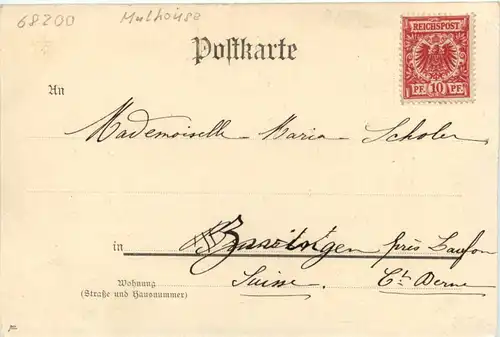 68200 Mulhouse
Postkarte
REICHSPOST
PF. 10 PF.
An
Mademoiselle Maria Scholer
in près Laufon
Wohnung
(Straße und Hausnummer)
Suisse. Ct. Berne